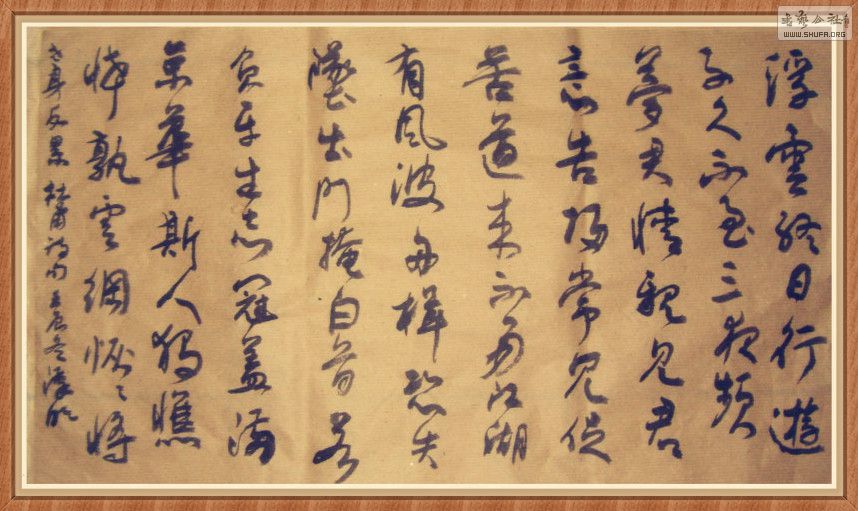 書藝公社
WWW.SHUFA.ORG
浮雲終日行遊
子久不至三夜頻
夢君情親見君
意告歸常局促
苦道来不易江湖
有風波舟楫恐失
墜出門掩白首若
負平生志冠蓋滿
京華斯人獨憔
悴孰雲網恢々將
老身反累 杜甫詩句 壬辰冬